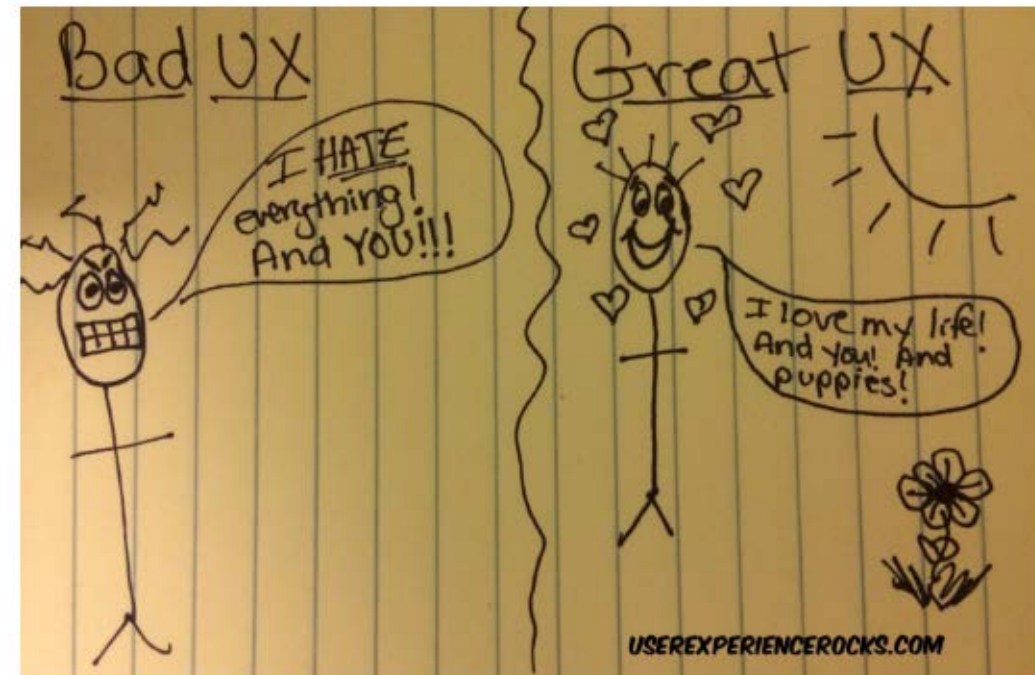 Bad UX
I HATE
everything!
And YOU!!!
Great UX
I love my life!
And you! And
puppies!
USEREXPERIENCEROCKS.COM